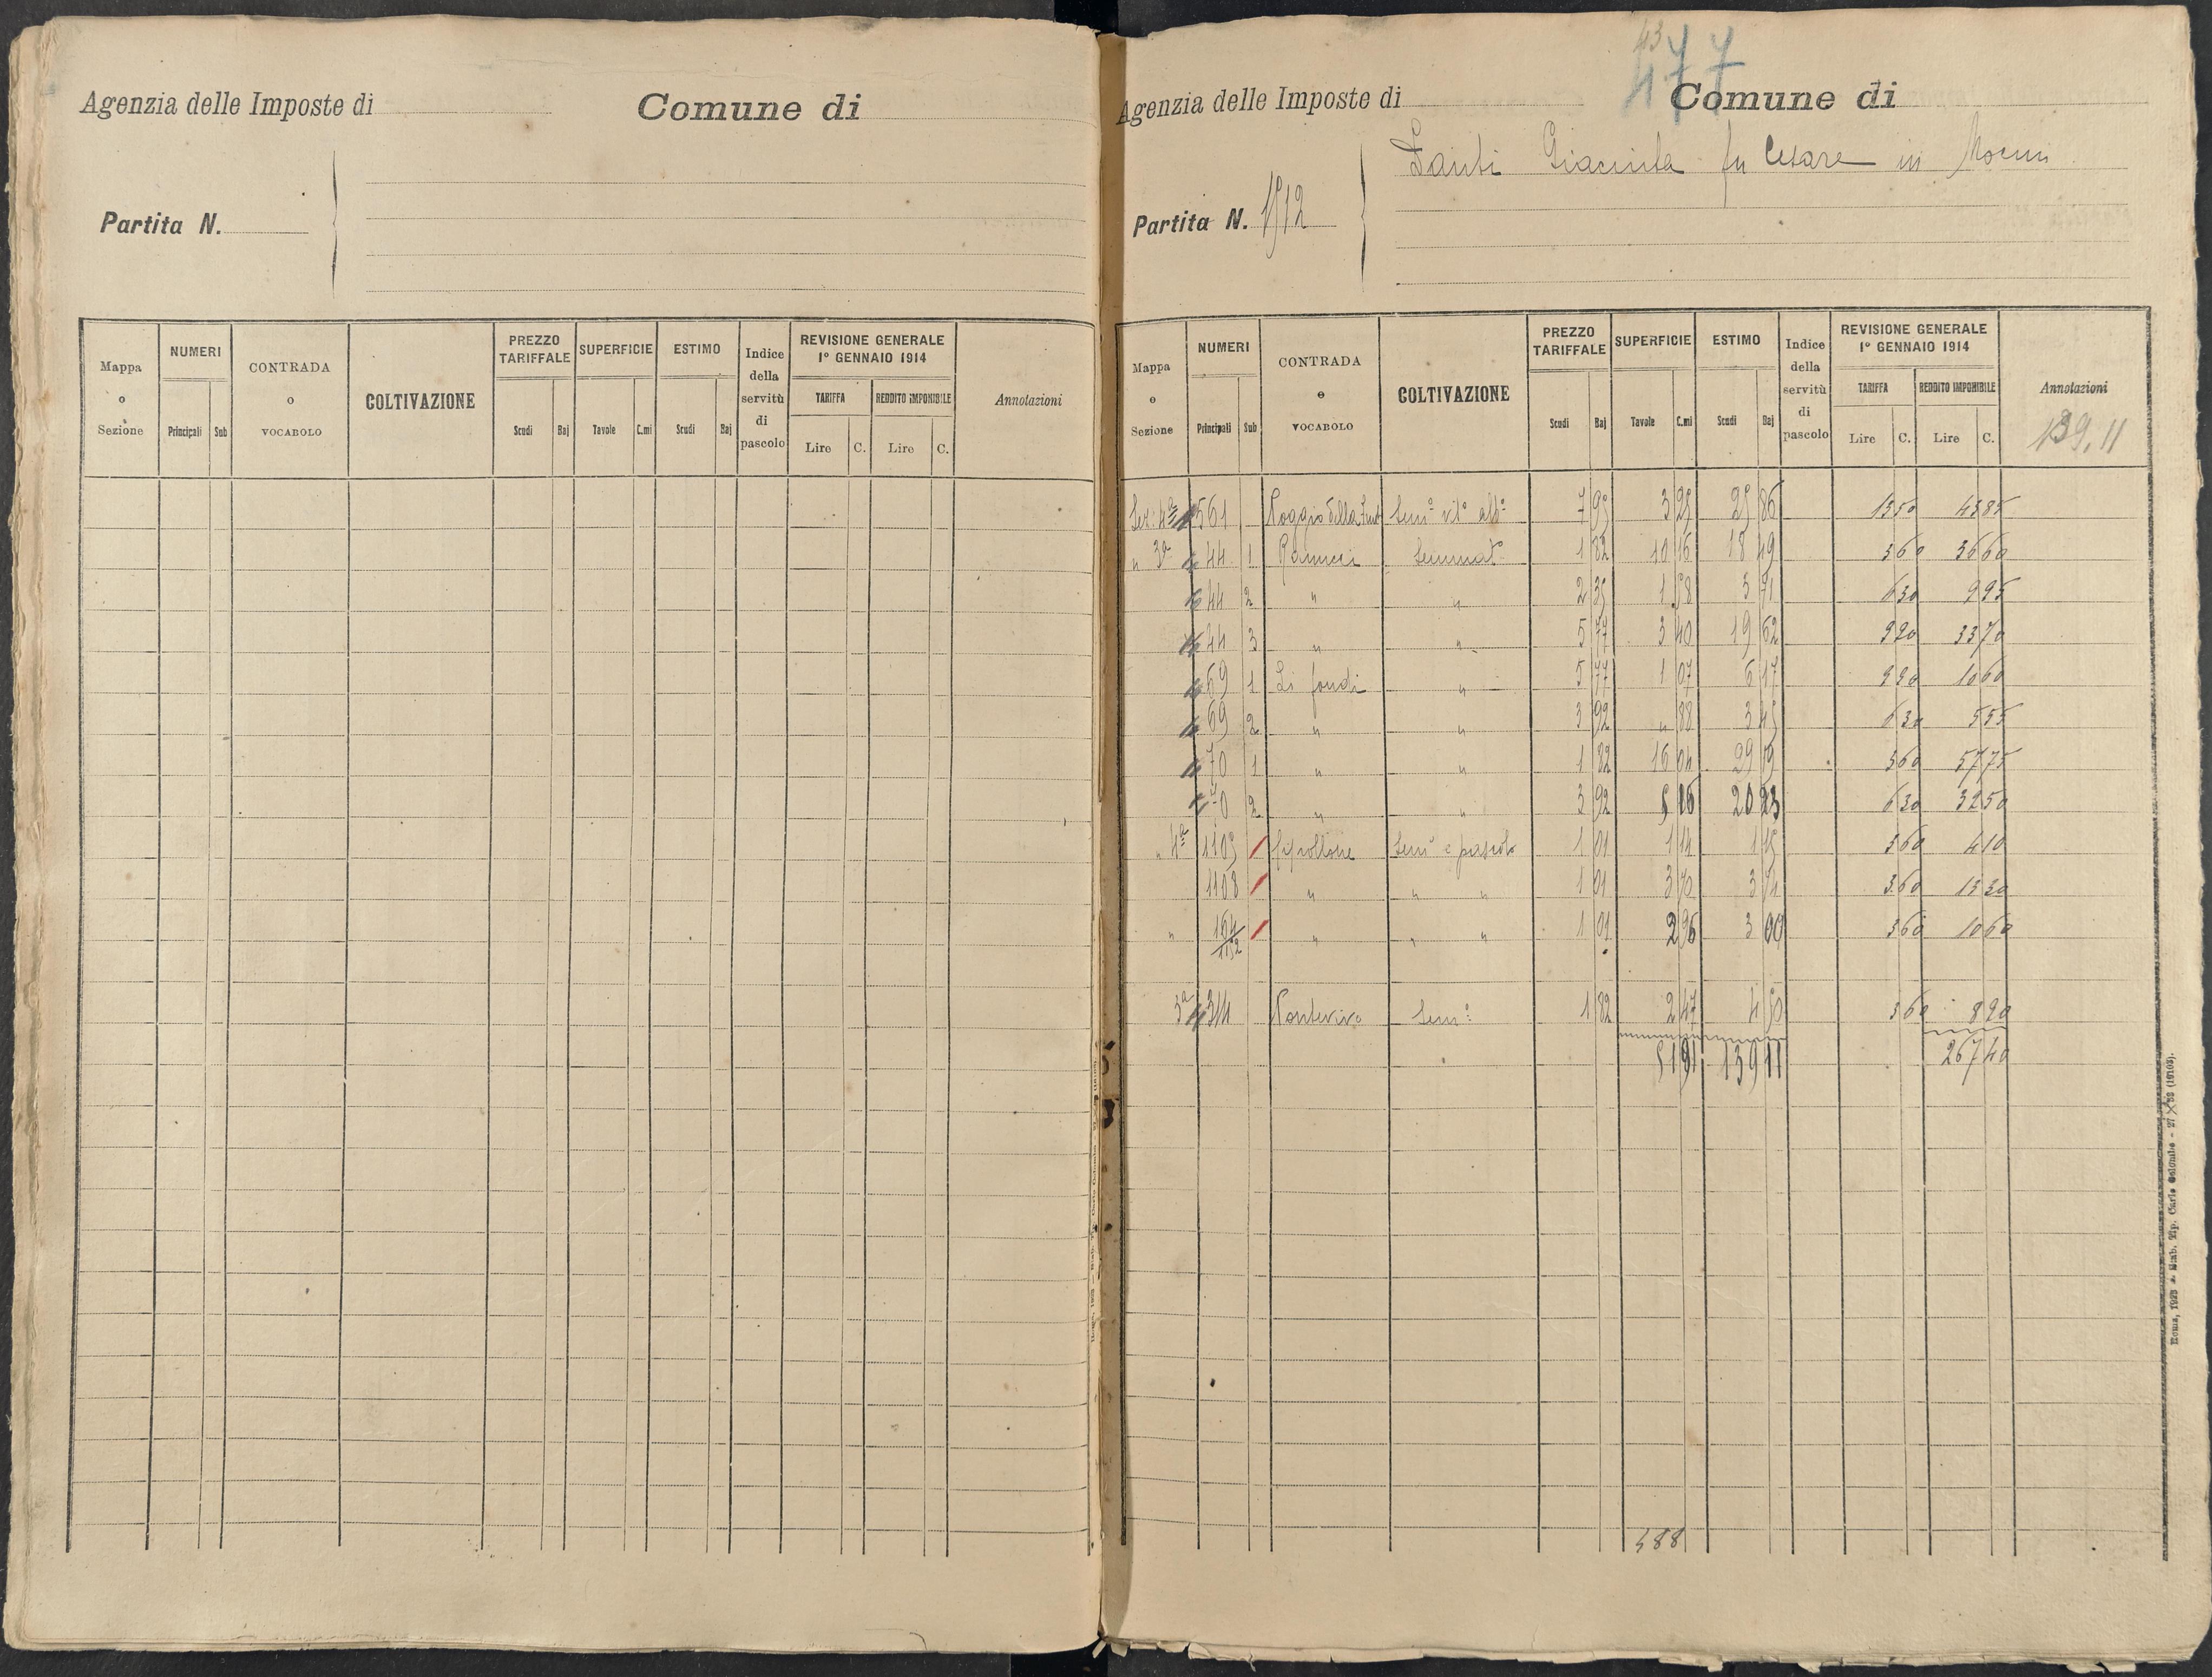 Agenzia delle Imposte di
Comune di
Partita N.
Mappa o Sezione
NUMERI
Principali Sub
CONTRADA o VOCABOLO
COLTIVAZIONE
PREZZO TARIFFALE
Scudi Baj
SUPERFICIE
Tavole C.mi
ESTIMO
Scudi Baj
Indice della servitù di pascolo
REVISIONE GENERALE
1° GENNAIO 1914
TARIFFA
Lire C.
REDDITO IMPONIBILE
Lire C.
Annotazioni
43
477
Agenzia delle Imposte di
Comune di
Giacinta fu Cesare in
Partita N. 1512
Mappa o Sezione
NUMERI
Principali Sub
CONTRADA e VOCABOLO
COLTIVAZIONE
PREZZO TARIFFALE
Scudi Baj
SUPERFICIE
Tavole C.mi
ESTIMO
Scudi Baj
Indice della servitù di pascolo
REVISIONE GENERALE
1° GENNAIO 1914
TARIFFA
Lire C.
REDDITO IMPONIBILE
Lire C.
Annotazioni
139.11
Sez. 4ª 561 Poggio della Sem° vit° alb° 7 95 3 25 25 86 1350 4385
" 3ª 44 1 Ranucci Seminat° 1 82 10 16 18 49 360 3660
44 2 " " 2 35 1 58 3 71 630 995
44 3 " " 5 77 3 40 19 62 990 3370
69 1 Li fondi " 5 77 1 07 6 17 990 1060
69 2 " " 3 92 " 88 3 45 630 555
70 1 " " 1 82 16 04 29 19 360 5775
70 2 " " 3 92 5 16 20 23 630 3250
" 4ª 1105 Sem° e pascolo 1 01 1 14 1 15 360 410
1108 " " " 1 01 3 70 3 74 360 1330
" 164/1152 " " " 1 01 2 96 3 00 360 1060
3ª 314 Sem° 1 82 2 47 4 50 360 890
51 91 139 11 26740
588
Roma, 1923 - Stab. Tip. Carlo Colombo